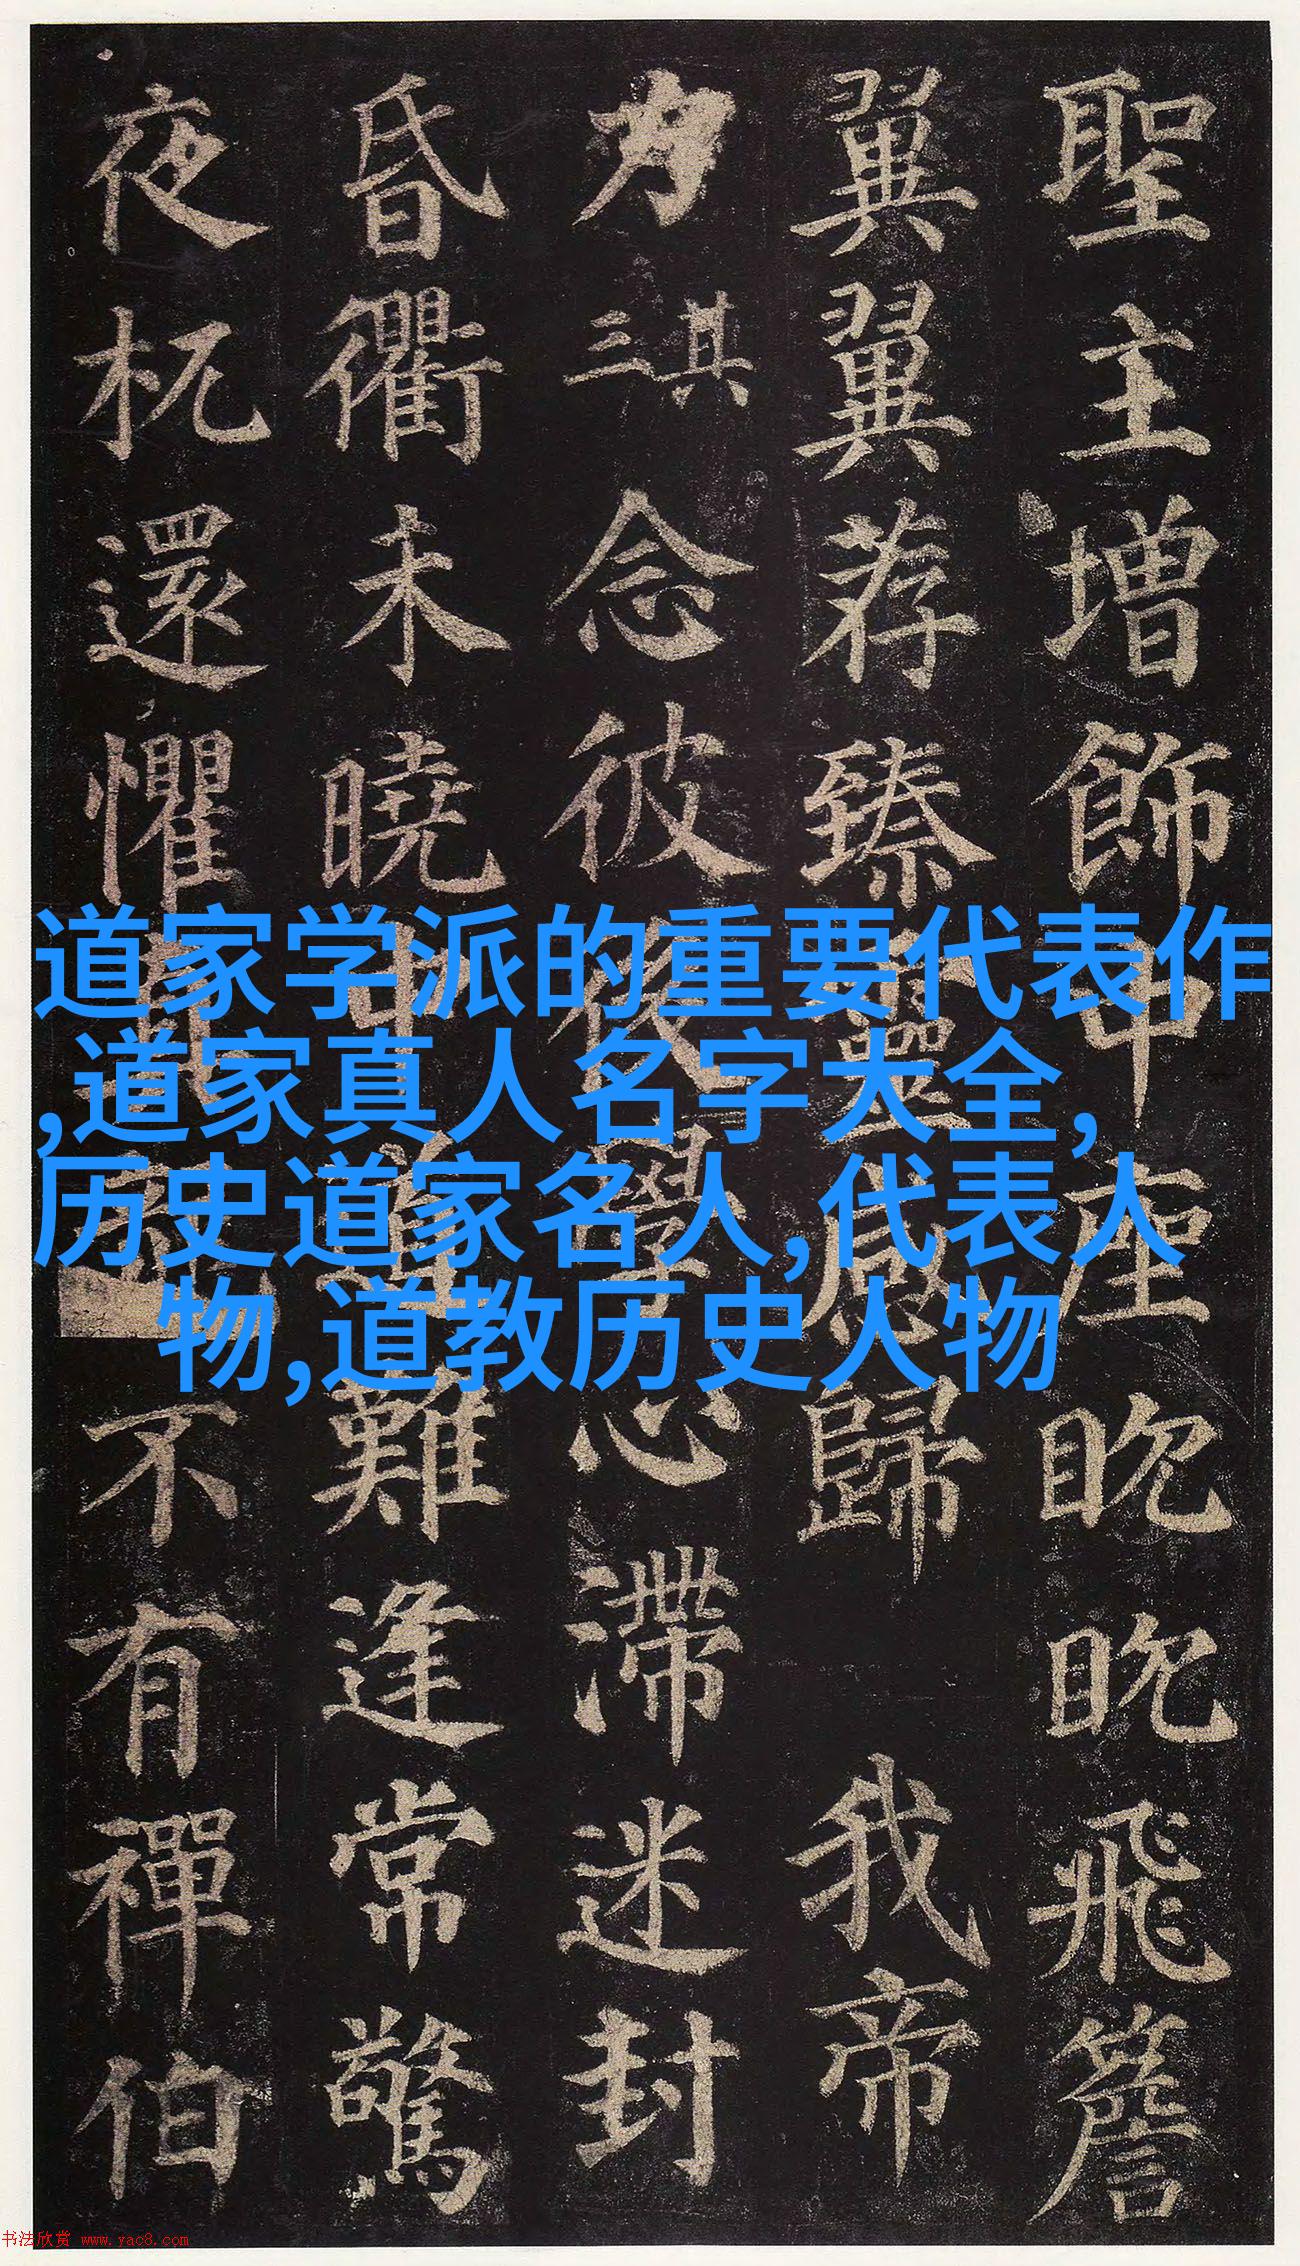 聖主增飾中座眈眈飛簷
翼翼荐臻靈感歸 我帝
力 其三 念彼後學心滯迷封
昏衢未曉中難逢常驚
夜杌還懼真不有禪伯
道家学派的重要代表作
,道家真人名字大全,
历史道家名人,代表人
物,道教历史人物
书法欣赏 www.yac8.com